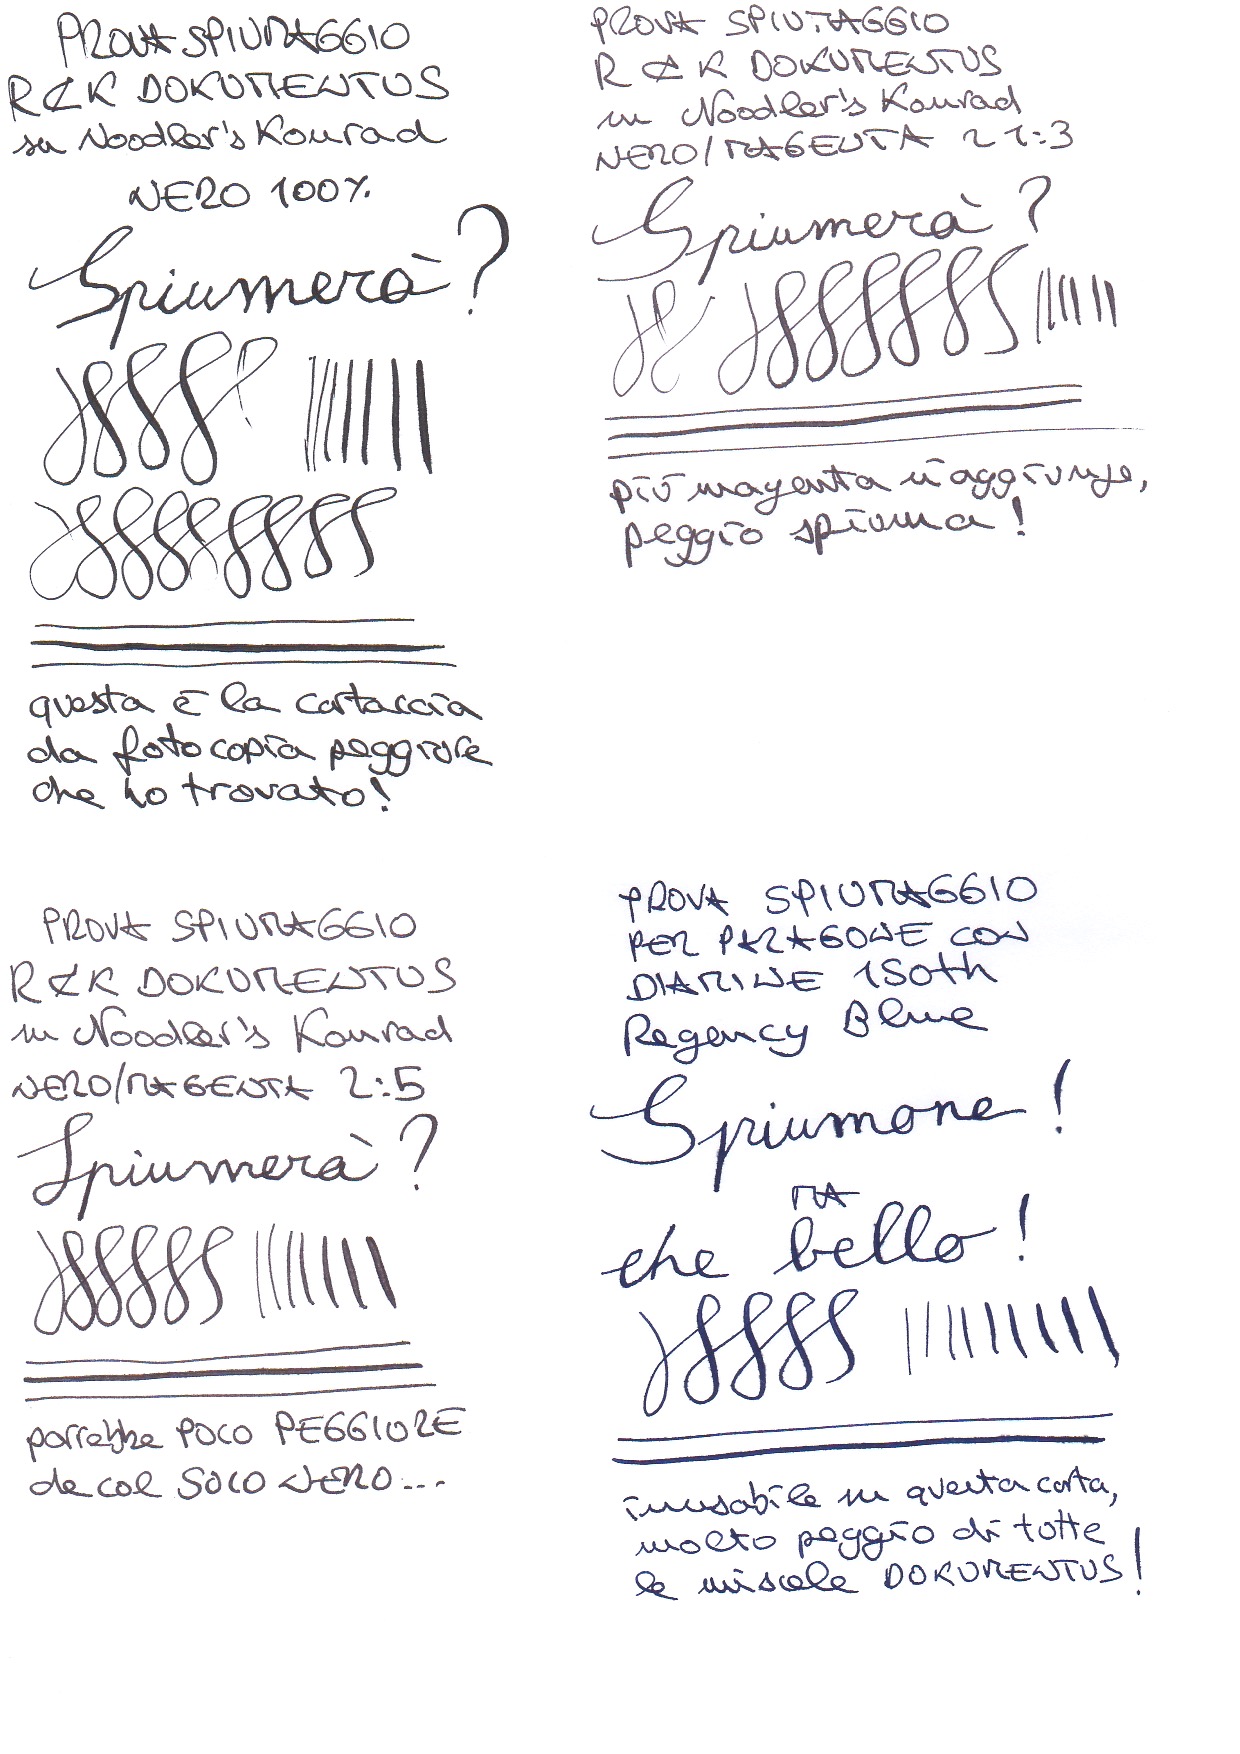 PROVA SPIUMAGGIO
R&K DOKUMENTUS
su Noodler's Konrad
NERO 100%
Spiumerà?
questa è la cartaccia
da fotocopia peggiore
che ho trovato!
PROVA SPIUMAGGIO
R & K DOKUMENTUS
in Noodler's Konrad
NERO/MAGENTA 2:3
Spiumerà?
più magenta si aggiunge,
peggio spiuma!
PROVA SPIUMAGGIO
R&K DOKUMENTUS
in Noodler's Konrad
NERO/MAGENTA 2:5
Spiumerà?
parrebbe POCO PEGGIORE
che col SOLO NERO...
PROVA SPIUMAGGIO
PER PARAGONE CON
DIAMINE 150th
Regency Blue
Spiumone!
MA
che bello!
inusabile su questa carta,
molto peggio di tutte
le miscele DOKUMENTUS!